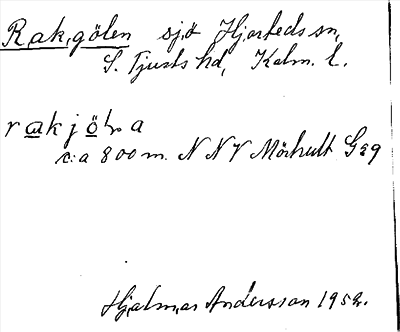 Rakgölen sjö Hjorteds sn,
S. Tjusts hd, Kalm. l.
rakjöla
c:a 800 m. NNV Mörhult Gäg
Hjalmar Andersson 1952.